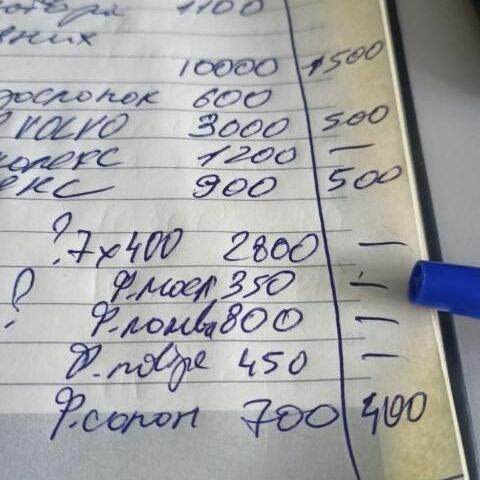 1100
вних
10000 1500
заслонок 600
VOLVO 3000 500
1200 —
екс 900 500
? 7х400 2800 —
? Ф.масл 350 —
Ф.палива 800 —
Ф.повітря 450 —
Ф.салон 700 400